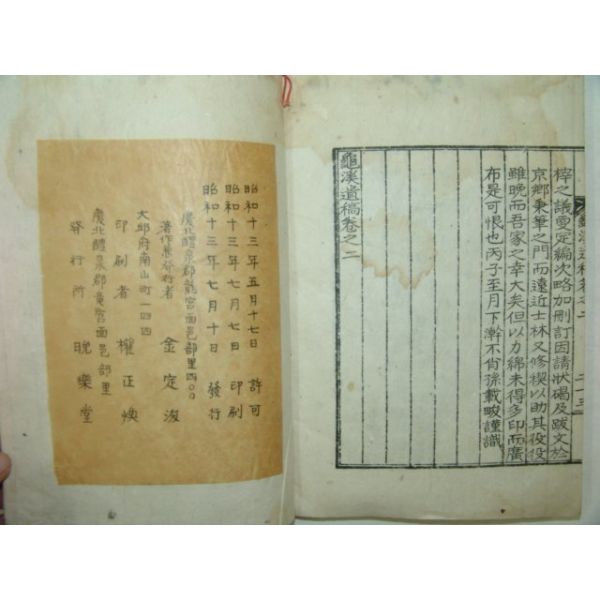 梓之議爰定編次略加刪訂因請狀碣及跋文於
京鄉秉筆之門而遠近士林又修稧以助其役役
雖晩而吾家之幸大矣但以力綿未得多印而廣
布是可恨也丙子至月下澣不肖孫載晙謹識
龜溪遺稿卷之二
龜溪遺稿卷之二
昭和十三年五月十七日 許可
昭和十三年七月七日 印刷
昭和十三年七月十日 發行
慶北醴泉郡龍宮面邑部里四〇〇
著作兼發行者 金定浚
大邱府南山町一四四
印刷者 權正煥
慶北醴泉郡龍宮面邑部里
發行所 晩樂堂